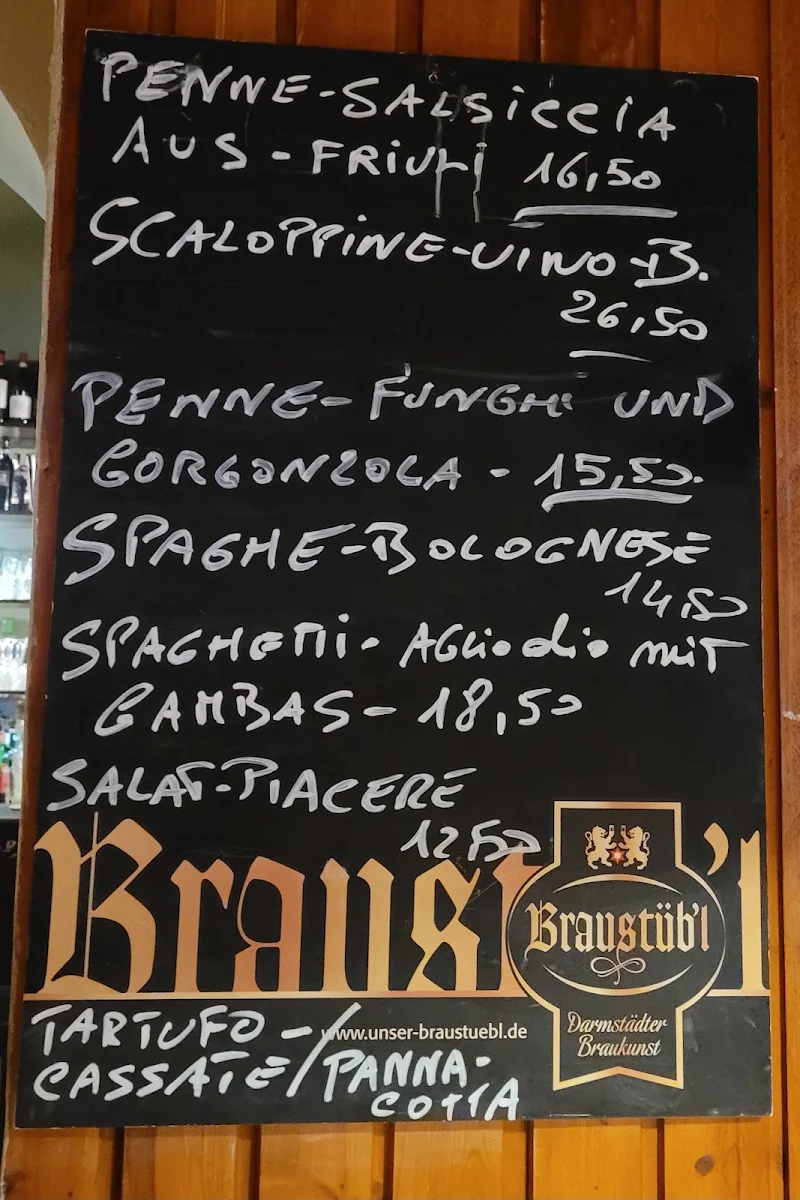 PENNE-SALSICCIA
AUS-FRIULI 16,50
SCALOPPINE-VINO-B.
26,50
PENNE-FUNGHI UND
GORGONZOLA - 15,50.
SPAGHE-BOLOGNESE
14,50
SPAGHETTI-AGLiodio mit
GAMBAS-18,50
SALAT-PIACERE
12,50
Braust 'l
Braustüb'l
Darmstädter
Braukunst
www.unser-braustuebl.de
TARTUFO -
CASSATE/PANNA-
COTTA